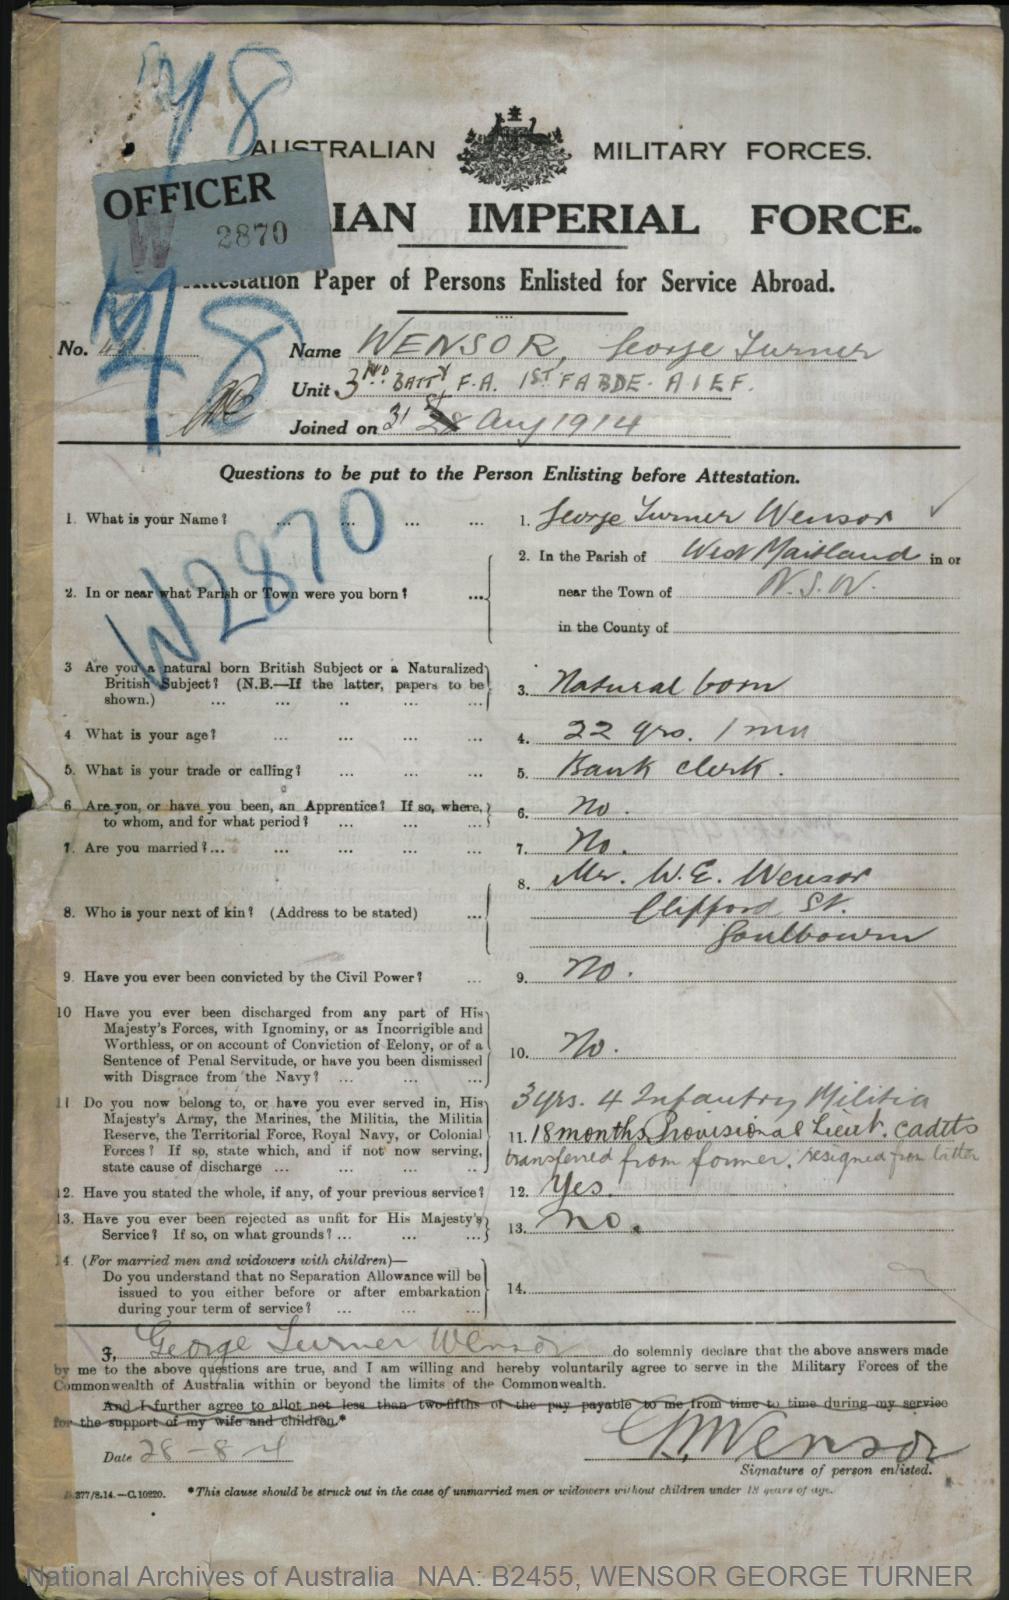 78
AUSTRALIAN MILITARY FORCES.
OFFICER
W 2870
IAN IMPERIAL FORCE.
Attestation Paper of Persons Enlisted for Service Abroad.
78
No. Name WENSOR, George Turner
Unit 3RD BATTY F.A. 1ST F A BDE. A I E F.
Joined on 31st 28 Aug 1914
Questions to be put to the Person Enlisting before Attestation.
W2870
1. What is your Name? ... ... ... ... 1. George Turner Wensor
2. In or near what Parish or Town were you born? ... 2. In the Parish of West Maitland in or
near the Town of N.S.W.
in the County of
3 Are you a natural born British Subject or a Naturalized
British Subject? (N.B.—If the latter, papers to be
shown.) ... ... .. ... ... 3. Natural born
4 What is your age? ... ... ... ... 4. 22 yrs. 1 mn
5. What is your trade or calling? ... ... ... 5. Bank clerk.
6 Are you, or have you been, an Apprentice? If so, where,
to whom, and for what period? ... ... ... 6. No.
7. Are you married?... ... ... ... ... 7. No.
8. Who is your next of kin? (Address to be stated) ... 8. Mr. W. E. Wensor
Clifford St.
Goulbourn
9. Have you ever been convicted by the Civil Power? ... 9. No.
10 Have you ever been discharged from any part of His
Majesty's Forces, with Ignominy, or as Incorrigible and
Worthless, or on account of Conviction of Felony, or of a
Sentence of Penal Servitude, or have you been dismissed
with Disgrace from the Navy? ... ... ... 10. No.
11 Do you now belong to, or have you ever served in, His
Majesty's Army, the Marines, the Militia, the Militia
Reserve, the Territorial Force, Royal Navy, or Colonial
Forces? If so, state which, and if not now serving,
state cause of discharge ... ... .. ..
3 yrs. 4 Infantry Militia
11. 18 months Provisional Lieut. cadets
transferred from former. resigned from latter
12. Have you stated the whole, if any, of your previous service? 12. Yes.
13. Have you ever been rejected as unfit for His Majesty's
Service? If so, on what grounds? ... ... ... 13. no.
14. (For married men and widowers with children)—
Do you understand that no Separation Allowance will be
issued to you either before or after embarkation
during your term of service? ... ... ... 14.
I, George Turner Wensor do solemnly declare that the above answers made
by me to the above questions are true, and I am willing and hereby voluntarily agree to serve in the Military Forces of the
Commonwealth of Australia within or beyond the limits of the Commonwealth.
And I further agree to allot not less than two-fifths of the pay payable to me from time to time during my service
for the support of my wife and children.*
Date 28-8-14 G.T. Wensor
Signature of person enlisted.
D.277/8.14.—C.10220. *This clause should be struck out in the case of unmarried men or widowers without children under 18 years of age.
National Archives of Australia NAA: B2455, WENSOR GEORGE TURNER